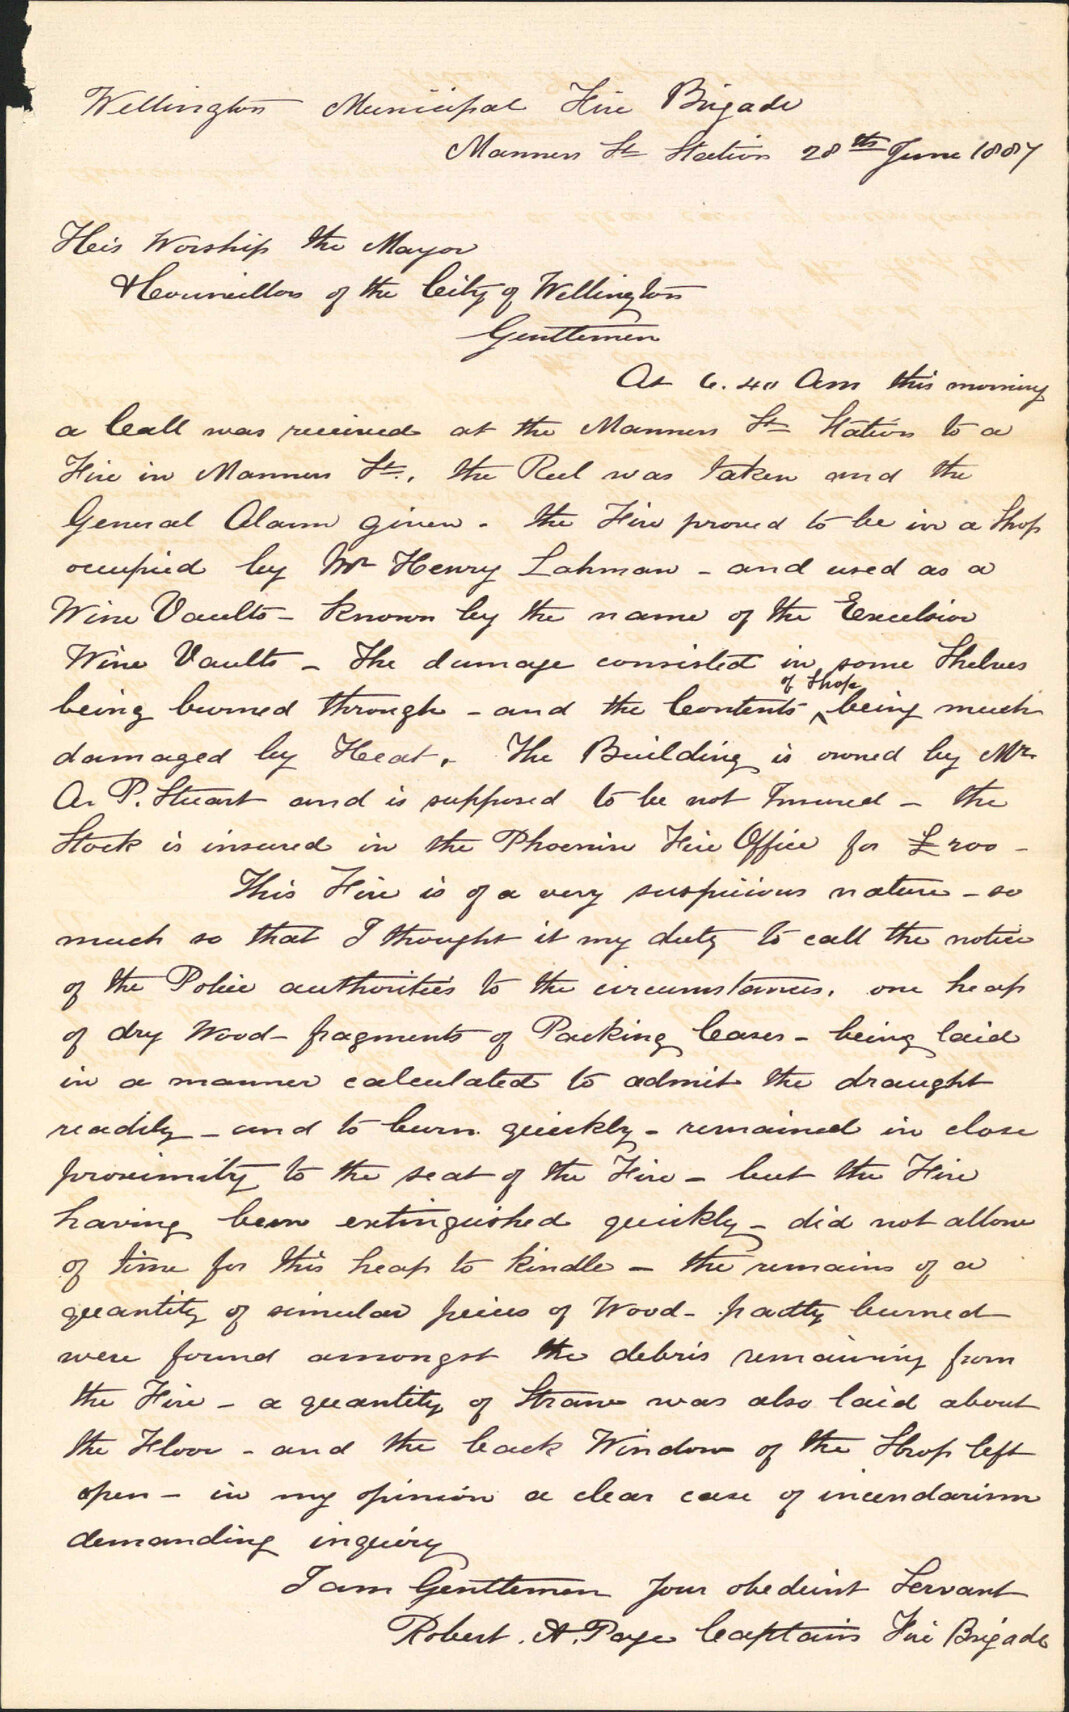 Wellington Municipal Fire Brigade
Manners St Station 28th June 1887
His Worship the Mayor
& Councillors of the City of Wellington
Gentlemen
At 6.40 Am this morning
a Call was received at the Manners St Station to a
Fire in Manners St., the Reel was taken and the
General Alarm given - the Fire proved to be in a Shop
occupied by Mr Henry Lahman - and used as a
Wine Vaults - known by the name of the Excelsior
Wine Vaults - The damage consisted in some Shelves
being burned through - and the Contents of Shop being much
damaged by Heat. The Building is owned by Mr
A. P. Stuart and is supposed to be not Insured - the
Stock is insured in the Phoenix Fire Office for £200 -
This Fire is of a very suspicious nature - so
much so that I thought it my duty to call the notice
of the Police authorities to the circumstances. one heap
of dry Wood - fragments of Packing Cases - being laid
in a manner calculated to admit the draught
readily - and to burn quickly - remained in close
proximity to the seat of the Fire - but the Fire
having been extinguished quickly - did not allow
of time for this heap to kindle - the remains of a
quantity of simular peices of Wood - partly burned
were found amongst the debris remaining from
the Fire - a quantity of Straw was also laid about
the Floor - and the back Window of the Shop left
open - in my opinion a clear case of incendarism
demanding inquiry
I am Gentlemen your obedient Servant
Robert. A. Page Captain Fire Brigade